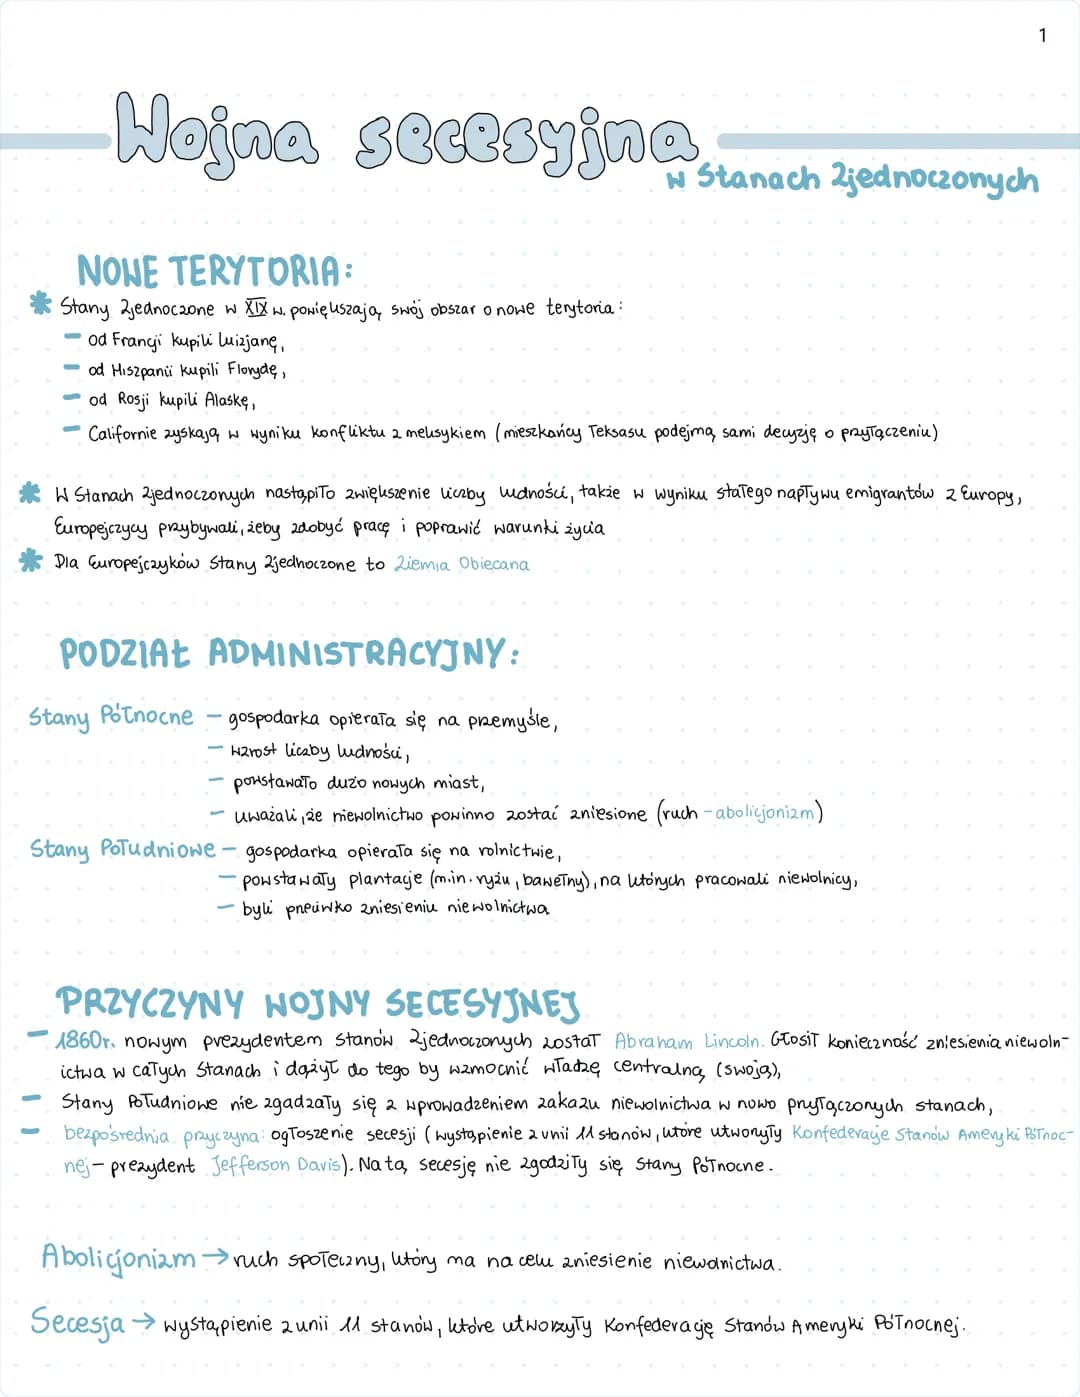 1
Wojna secesyjna
w Stanach Zjednoczonych
NOWE TERYTORIA:
* Stany Zjednoczone w XIX w. powiększają swój obszar o nowe terytoria:
- od Francji kupili Luizjanę,
- od Hiszpanii kupili Florydę,
- od Rosji kupili Alaskę,
- Californie zyskają w wyniku konfliktu z meksykiem (mieszkańcy Teksasu podejmą sami decyzję o przyłączeniu)
* W Stanach Zjednoczonych nastąpiło zwiększenie liczby ludności, także w wyniku stałego napływu emigrantów z Europy,
Europejczycy przybywali, żeby zdobyć pracę i poprawić warunki życia
* Dla Europejczyków Stany Zjednoczone to Ziemia Obiecana
PODZIAŁ ADMINISTRACYJNY:
Stany Północne - gospodarka opierała się na przemyśle,
- wzrost liczby ludności,
- powstawało dużo nowych miast,
- uważali, że niewolnictwo powinno zostać zniesione (ruch - abolicjonizm)
Stany Południowe - gospodarka opierała się na rolnictwie,
- powstawały plantacje (m.in. ryżu, bawełny), na których pracowali niewolnicy,
- byli przeciwko zniesieniu niewolnictwa
PRZYCZYNY WOJNY SECESYJNEJ
- 1860r. nowym prezydentem stanów Zjednoczonych został Abraham Lincoln. Głosił konieczność zniesienia niewoln-
ictwa w całych Stanach i dążył do tego by wzmocnić władzę centralną (swoją),
- Stany Południowe nie zgadzały się z wprowadzeniem zakazu niewolnictwa w nowo przyłączonych stanach,
- bezpośrednia przyczyna: ogłoszenie secesji (wystąpienie z unii 11 stanów, które utworzyły Konfederacje Stanów Ameryki Północ-
nej - prezydent Jefferson Davis). Na tą secesję nie zgodziły się Stany Północne.
Abolicjonizm → ruch społeczny, który ma na celu zniesienie niewolnictwa.
Secesja → wystąpienie z unii 11 stanów, które utworzyły Konfederację Stanów Ameryki Północnej.